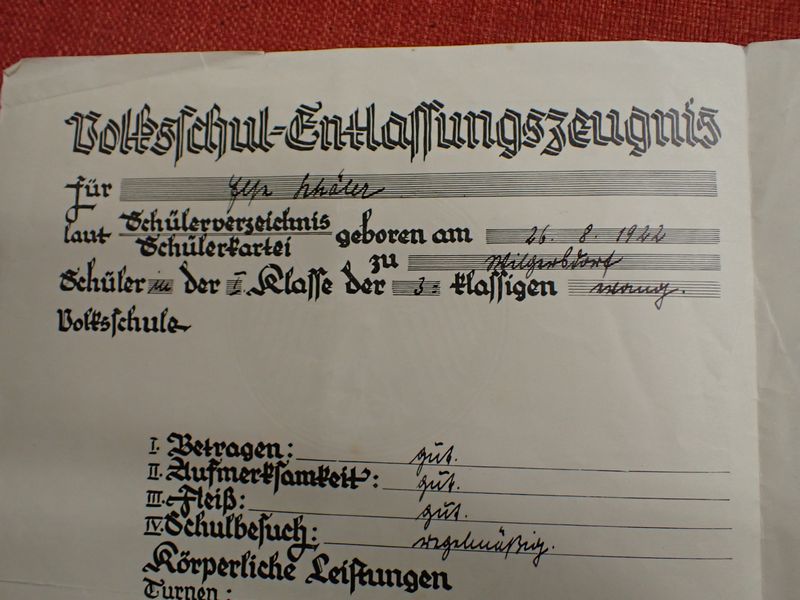 Volksschul-Entlassungszeugnis
für Else Schäler
laut Schülerverzeichnis geboren am 26. 8. 1922
Schülerkartei
zu Wilgersdorf
Schüler in der I. Klasse der 3= klassigen evang.
Volksschule
I. Betragen: gut.
II. Aufmerksamkeit: gut.
III. Fleiß: gut.
IV. Schulbesuch: regelmäßig.
Körperliche Leistungen
Turnen: